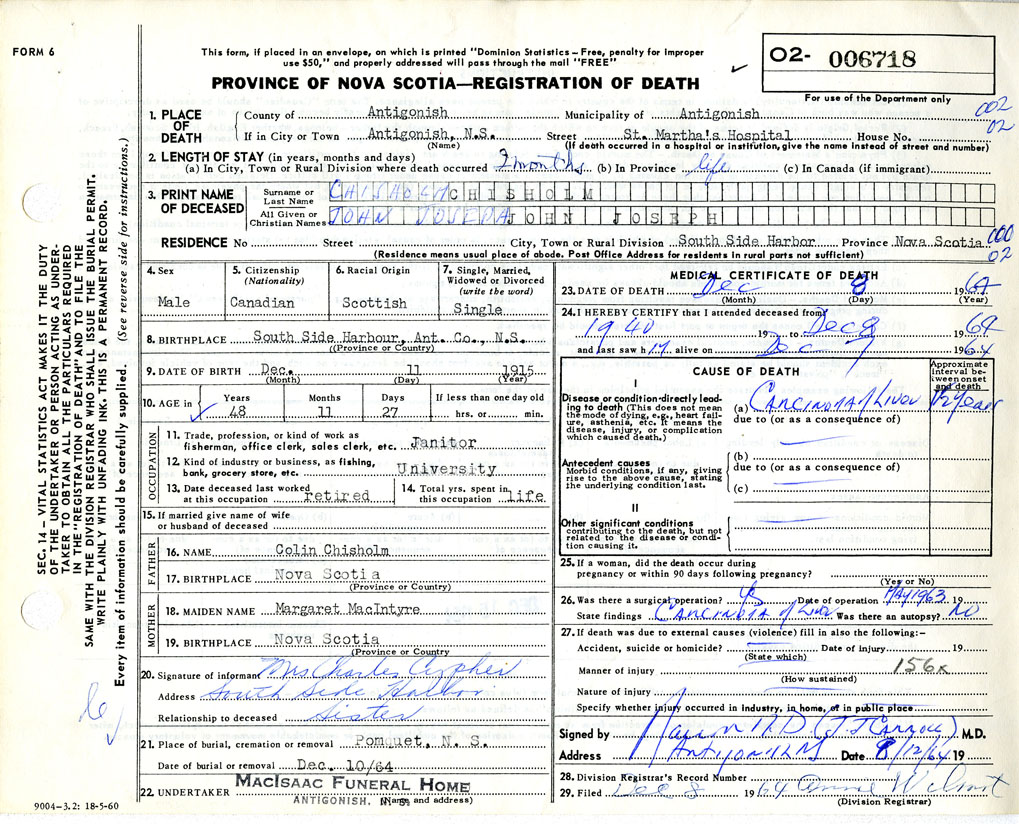 FORM 6
This form, if placed in an envelope, on which is printed "Dominion Statistics – Free, penalty for improper
use $50," and properly addressed will pass through the mail "FREE"
PROVINCE OF NOVA SCOTIA—REGISTRATION OF DEATH
O2- 006718
For use of the Department only
002
02
1. PLACE OF DEATH
County of Antigonish Municipality of Antigonish
If in City or Town Antigonish, N.S. Street St. Martha's Hospital House No.
(Name) (If death occurred in a hospital or institution, give the name instead of street and number)
2. LENGTH OF STAY (in years, months and days)
(a) In City, Town or Rural Division where death occurred 2 months (b) In Province life (c) In Canada (if immigrant)
3. PRINT NAME OF DECEASED
Surname or Last Name CHISHOLM CHISHOLM
All Given or Christian Names JOHN JOSEPH JOHN JOSEPH
000
02
RESIDENCE No Street City, Town or Rural Division South Side Harbor Province Nova Scotia
(Residence means usual place of abode. Post Office Address for residents in rural parts not sufficient)
4. Sex
Male
5. Citizenship
(Nationality)
Canadian
6. Racial Origin
Scottish
7. Single, Married,
Widowed or Divorced
(write the word)
Single
8. BIRTHPLACE South Side Harbour, Ant. Co., N.S.
(Province or Country)
9. DATE OF BIRTH Dec. 11 1915
(Month) (Day) (Year)
10. AGE in
Years Months Days If less than one day old
48 11 27 hrs. or min.
OCCUPATION
11. Trade, profession, or kind of work as
fisherman, office clerk, sales clerk, etc. Janitor
12. Kind of industry or business, as fishing,
bank, grocery store, etc. University
13. Date deceased last worked
at this occupation retired
14. Total yrs. spent in
this occupation life
15. If married give name of wife
or husband of deceased
FATHER
16. NAME Colin Chisholm
17. BIRTHPLACE Nova Scotia
(Province or Country)
MOTHER
18. MAIDEN NAME Margaret MacIntyre
19. BIRTHPLACE Nova Scotia
(Province or Country)
20. Signature of informant Mrs Charles
Address South Side Harbor
Relationship to deceased Sister
21. Place of burial, cremation or removal Pomquet, N. S.
Date of burial or removal Dec. 10/64
22. UNDERTAKER MACISAAC FUNERAL HOME
ANTIGONISH, N. S.
(Name and address)
MEDICAL CERTIFICATE OF DEATH
23. DATE OF DEATH Dec 8 1964
(Month) (Day) (Year)
24. I HEREBY CERTIFY that I attended deceased from
1940 19 to Dec 8 1964
and last saw him alive on Dec 7 1964
CAUSE OF DEATH
Approximate
interval be-
tween onset
and death
I
Disease or condition directly lead-
ing to death (This does not mean
the mode of dying, e.g., heart fail-
ure, asthenia, etc. It means the
disease, injury, or complication
which caused death.)
(a) Carcinoma of Liver 1½ years
due to (or as a consequence of)
Antecedent causes
Morbid conditions, if any, giving
rise to the above cause, stating
the underlying condition last.
(b)
due to (or as a consequence of)
(c)
II
Other significant conditions
contributing to the death, but not
related to the disease or condi-
tion causing it.
25. If a woman, did the death occur during
pregnancy or within 90 days following pregnancy?
(Yes or No)
26. Was there a surgical operation? yes Date of operation May 1963 19
State findings Carcinoma of Liver Was there an autopsy? No
27. If death was due to external causes (violence) fill in also the following:–
Accident, suicide or homicide? Date of injury 19
(State which)
Manner of injury 156x
(How sustained)
Nature of injury
Specify whether injury occurred in industry, in home, or in public place
Signed by M.D.
Address Antigonish Date 8/12/64 19
28. Division Registrar's Record Number
29. Filed Dec 8 1964 Annie Wilmot
(Division Registrar)
SEC. 14 – VITAL STATISTICS ACT MAKES IT THE DUTY
OF THE UNDERTAKER OR PERSON ACTING AS UNDER-
TAKER TO OBTAIN ALL THE PARTICULARS REQUIRED
IN THE "REGISTRATION OF DEATH" AND TO FILE THE
SAME WITH THE DIVISION REGISTRAR WHO SHALL ISSUE THE BURIAL PERMIT.
WRITE PLAINLY WITH UNFADING INK. THIS IS A PERMANENT RECORD.
Every item of information should be carefully supplied. (See reverse side for instructions.)
9004–3.2: 18-5-60